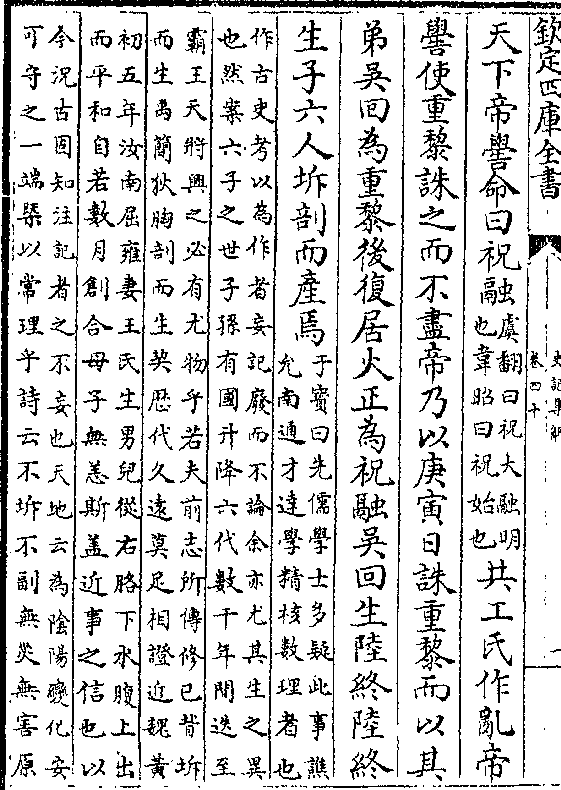 欽定四庫全書
史記集解
卷四十
天下帝嚳命曰祝融虞翻曰祝大融明也韋昭曰祝始也共工氏作亂帝
嚳使重黎誅之而不盡帝乃以庚寅日誅重黎而以其
弟吳回為重黎後復居火正為祝融吳回生陸終陸終
生子六人坼剖而產焉于寶曰先儒學士多疑此事譙允南通才達學精核數理者也
作古史考以為作者妄記廢而不論余亦尤其生之異
也然案六子之世子孫有國升降六代數千年間迭至
霸王天將興之必有尤物乎若夫前志所傳修已背坼
而生禹簡狄胸剖而生契歷代久遠莫足相證近魏黃
初五年汝南屈雍妻王氏生男兒從右胳下水腹上出
而平和自若數月創合母子無恙斯盖近事之信也以
今況古固知注記者之不妄也天地云為陰陽變化安
可守之一端槩以常理乎詩云不坼不副無災無害原